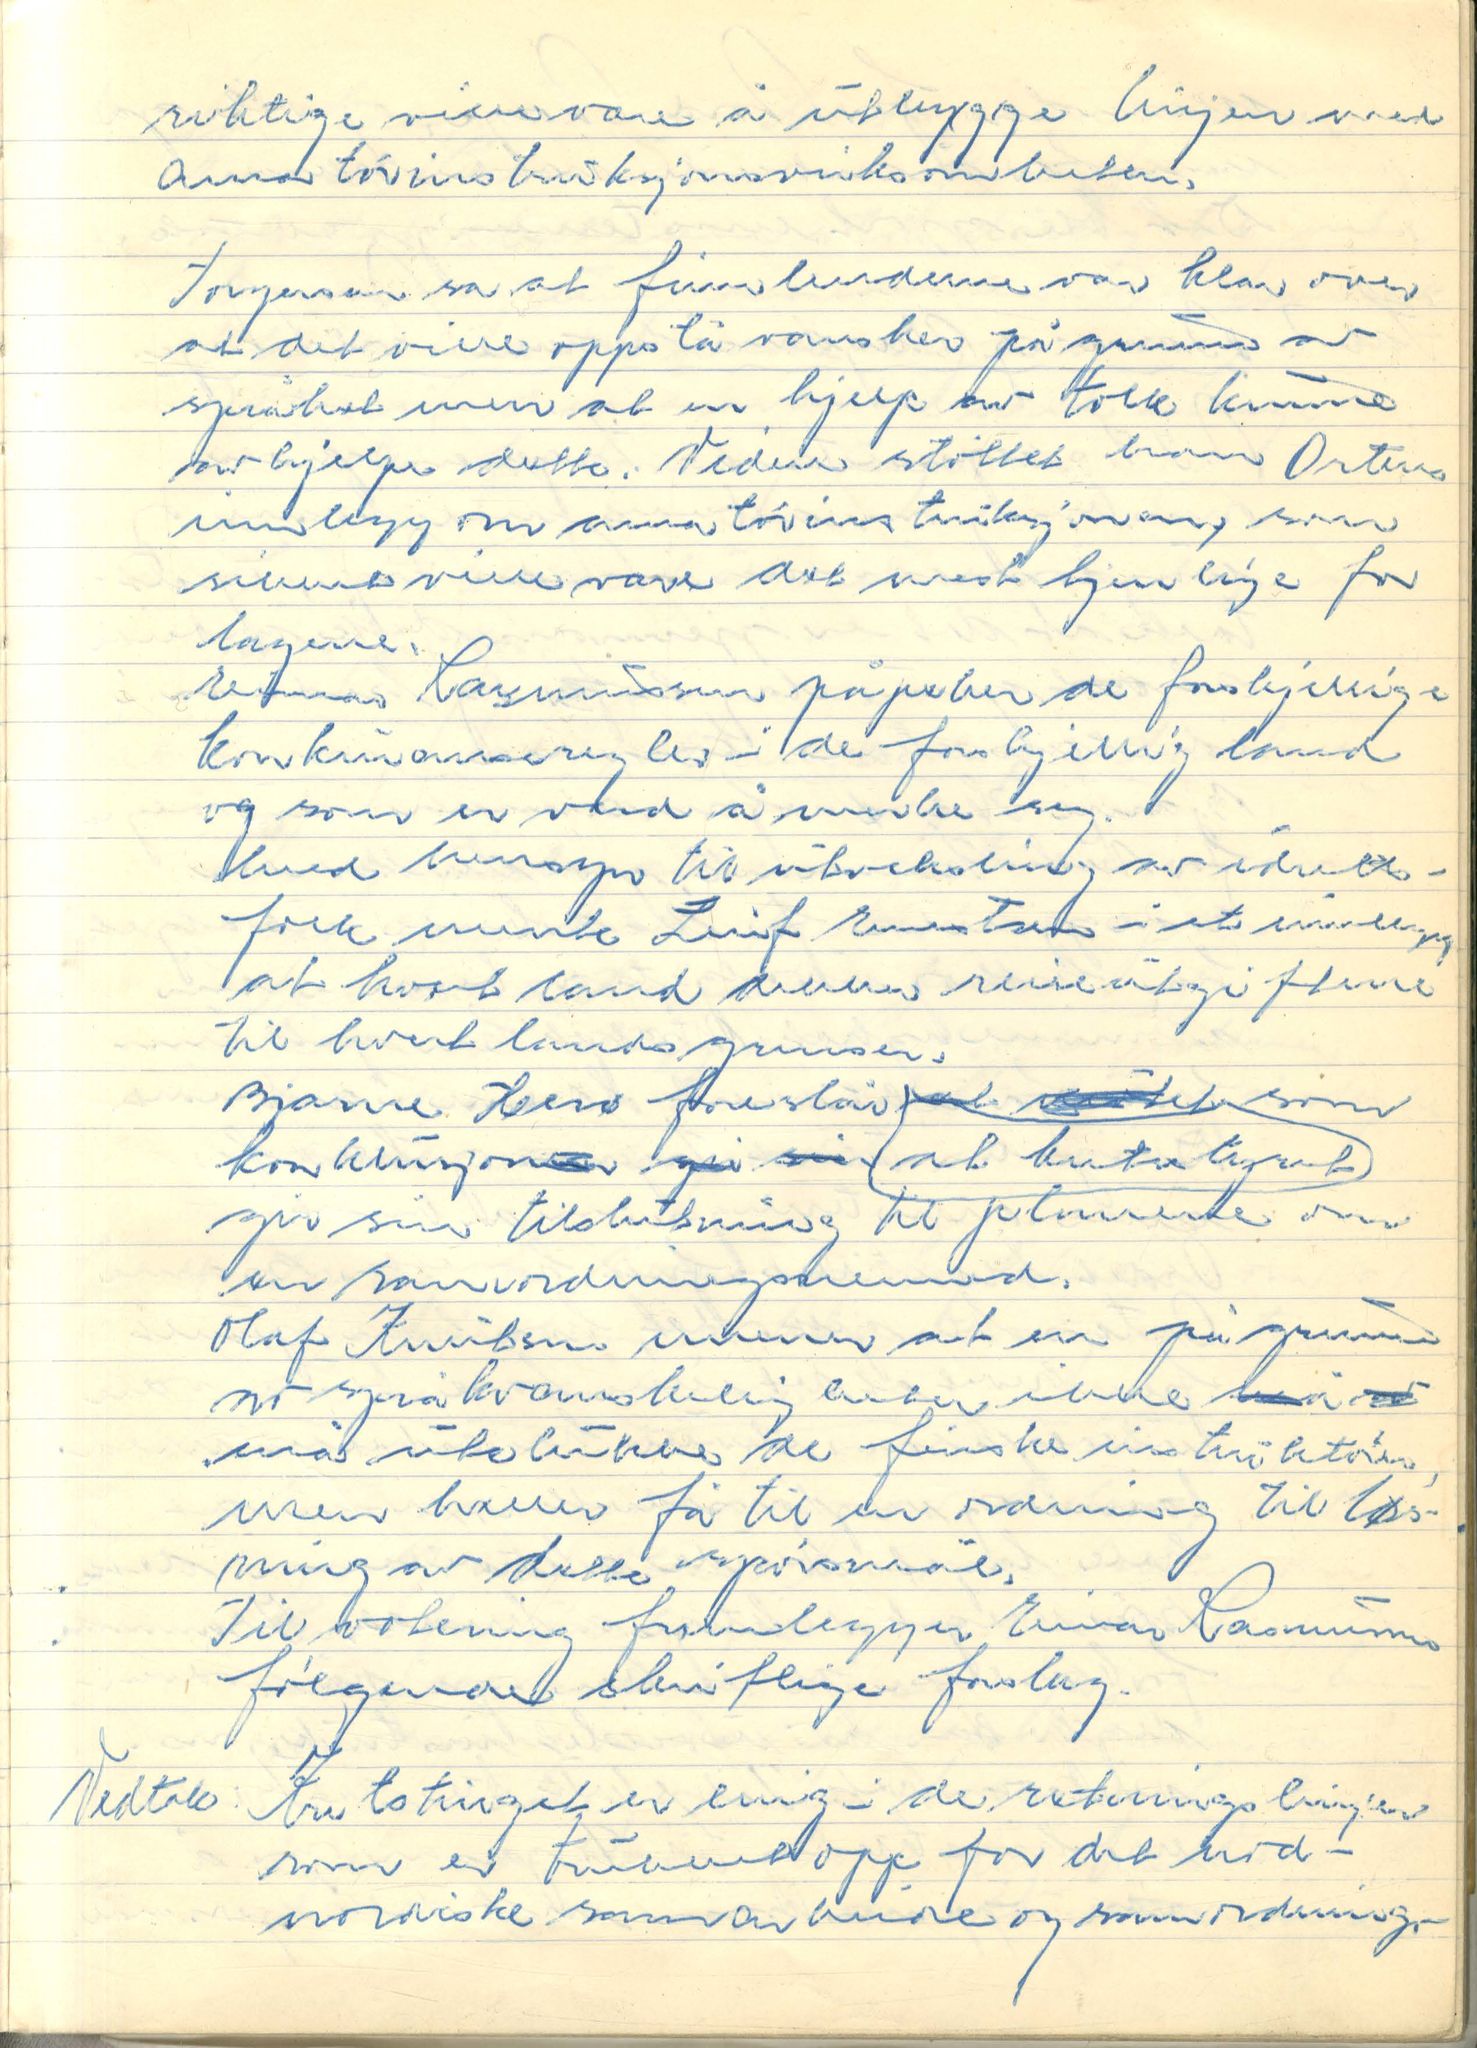 riktige ville være å utbygge linjen med
amatörinstruksjonsvirksomheten.
Torgersen sa at finnlenderne var klar over
at det ville oppstå vansker på grunn av
språket men at en hjelp av tolk kunne
avhjelpe dette. Videre stöttet han Ortens
innlegg om amatörinstruksjonen, som
sikkert ville være det mest tjenlige for
lagene.
Einar Rasmussen påpeker de forskjellige
konkurranseregler i de forskjellig land
og som er verd å merke seg.
Med hensyn til utveksling av idretts-
folk mente Leif Ernstsen i et innlegg
at hvert land dekker reiseutgiftene
til hvert lands grenser.
Bjarne Hero foreslår at som
konklusjonen gi sin at kretstinget
gir sin tilslutning til planene om
en samordningsnemnd.
Olaf Knutsen mener at en på grunn
av språkvanskeligheter ikke
må utelukke de finske instruktörer,
men heller få til en ordning til løs-
ning av dette spörsmål.
Til votering fremlegger Einar Rasmussen
fölgende skriftlige forslag.
Vedtak: Kretstinget er enig i de retningslinjer
som er trukket opp for det nord-
nordiske samarbeide og samordnings-